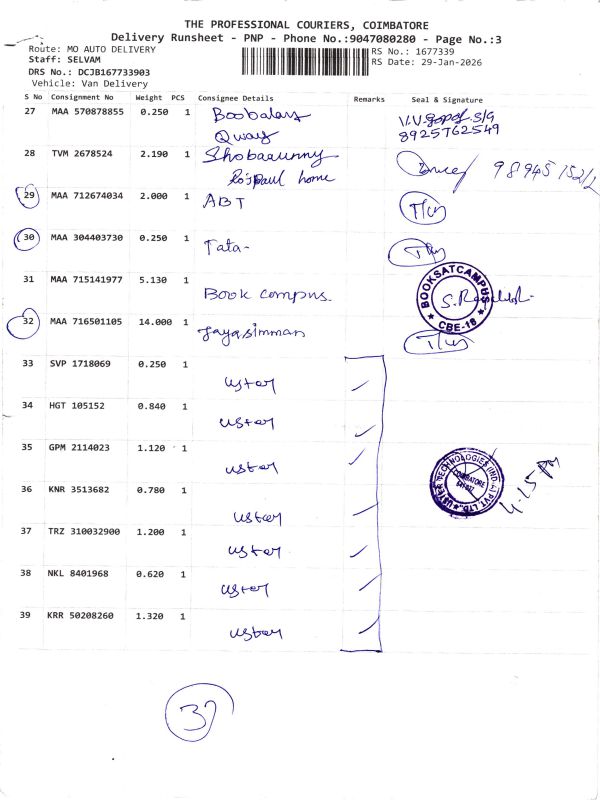 THE PROFESSIONAL COURIERS, COIMBATORE
Delivery Runsheet - PNP - Phone No.:9047080280 - Page No.:3
Route: MO AUTO DELIVERY
RS No.: 1677339
Staff: SELVAM
RS Date: 29-Jan-2026
DRS No.: DCJB167733903
Vehicle: Van Delivery
S No Consignment No Weight PCS Consignee Details Remarks Seal & Signature
27 MAA 570878855 0.250 1 Boobalan V.V.gopal S/G
Qway 8925762549
28 TVM 2678524 2.190 1 Shobaaunny
Rospaul home
29 MAA 712674034 2.000 1 ABT
30 MAA 304403730 0.250 1 Tata-
31 MAA 715141977 5.130 1 Book compus.
BOOKSATCAMPUS
CBE-18
32 MAA 716501105 14.000 1 Jayasimman
33 SVP 1718069 0.250 1 uster
34 HGT 105152 0.840 1 uster
35 GPM 2114023 1.120 1 uster
USTER TECHNOLOGIES (INDIA) PVT. LTD.
COIMBATORE
4.15 PM
36 KNR 3513682 0.780 1 uster
37 TRZ 310032900 1.200 1 uster
38 NKL 8401968 0.620 1 uster
39 KRR 50208260 1.320 1 uster
37